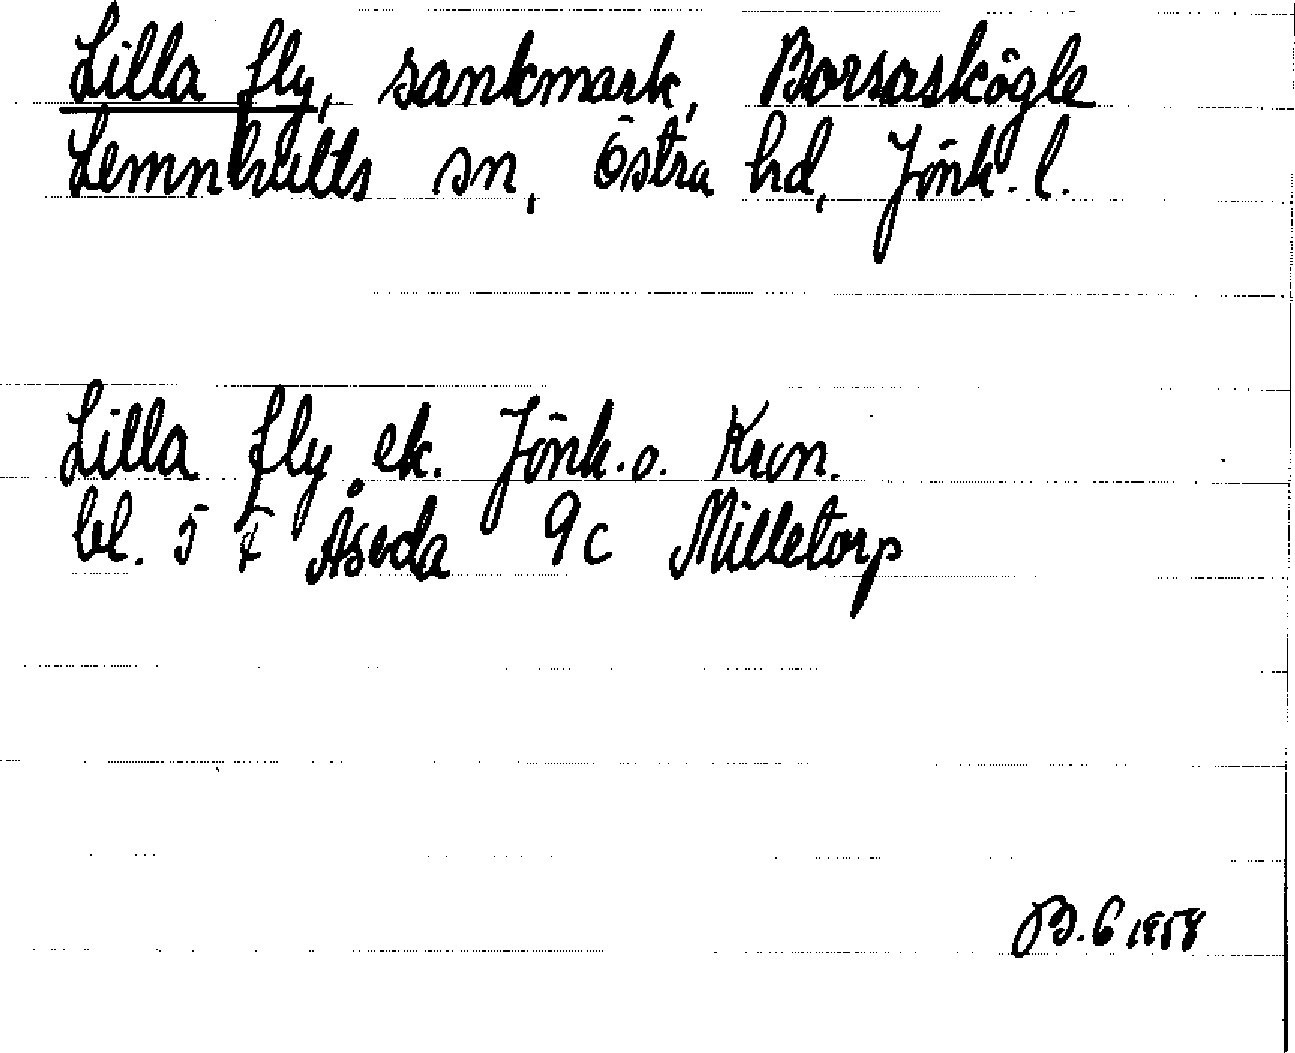 Lilla fly, sankmark, Borsaskögle
Lemnhults sn, Östra hd, Jönk. l.
Lilla fly ek. Jönk. o. Kron.
bl. 5 F Åseda 9c Milletorp
B.G 1958